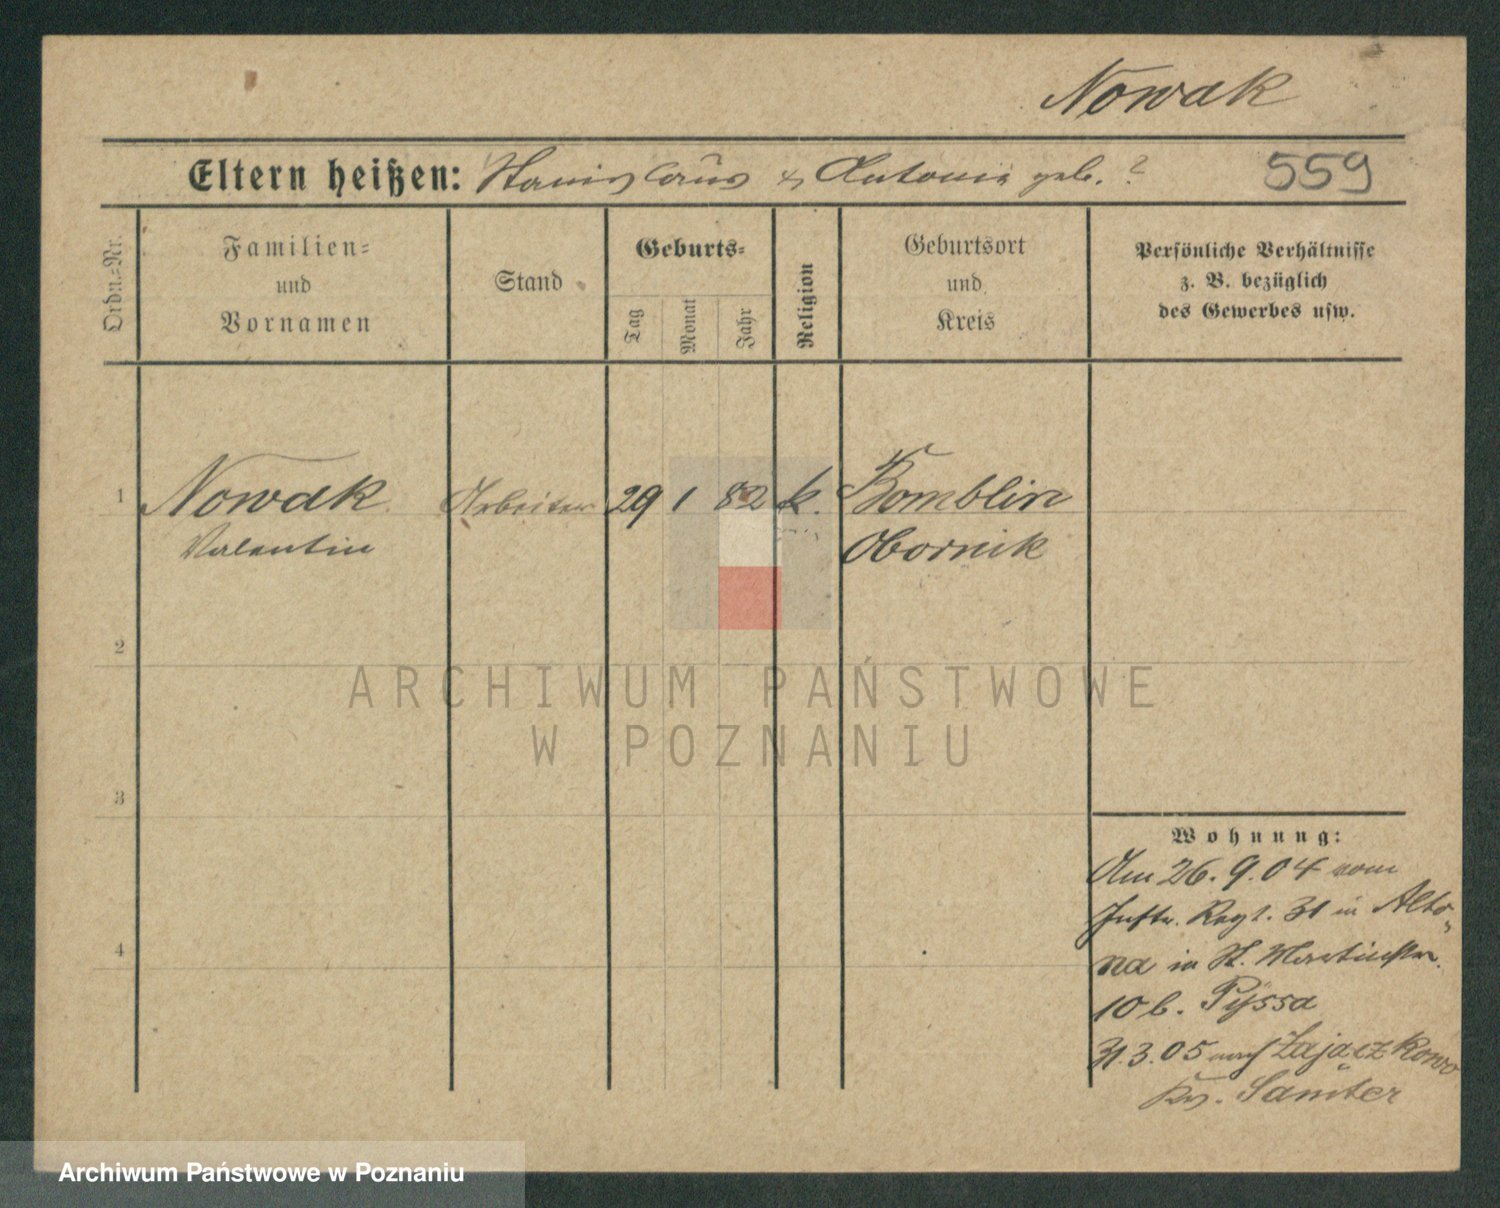 Nowak
Eltern heißen: Stanislaus & Antonie geb. ?
559
Ordn.=Nr.
Familien=
und
Vornamen
Stand
Geburts=
Tag
Monat
Jahr
Religion
Geburtsort
und
Kreis
Persönliche Verhältnisse
z. B. bezüglich
des Gewerbes usw.
1 Nowak Arbeiter 29 1 82 k. Bomblin
Valentin Obornik
2
3
4
Wohnung:
Am 26. 9. 04 vom
Inftr. Regt. 31 in Alto-
na in St. Martinstr.
10 b. Pyssa
31. 3. 05 nach Zajączkowo
Krs. Samter
ARCHIWUM PAŃSTWOWE
W POZNANIU
Archiwum Państwowe w Poznaniu